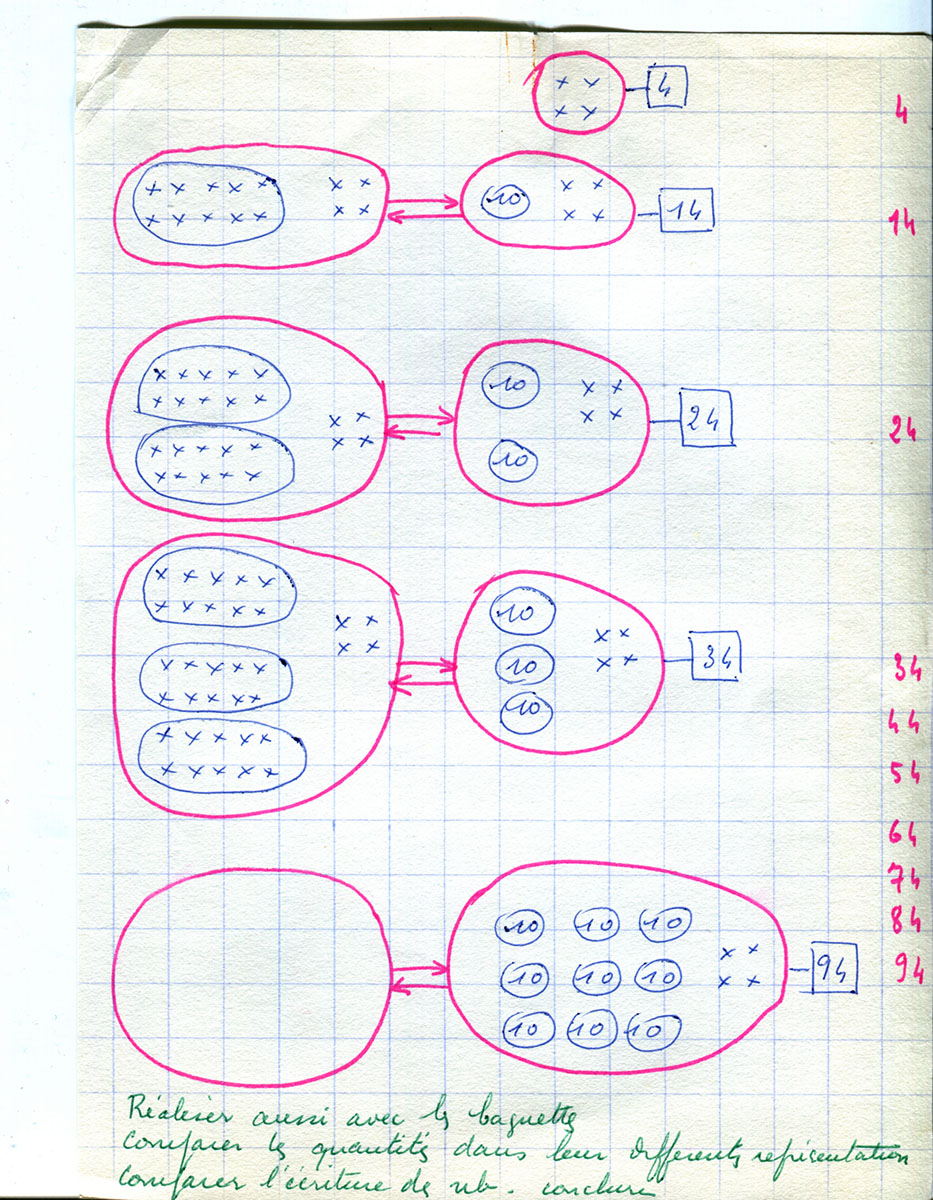 x x 4 4
x x
x x x x x x x 10 x x 14 14
x x x x x x x x x
x x x x x 10 x x 24 24
x x x x x x x x x
x x x x x x x 10
x x x x x
x x x x x 10
x x x x x x x x x
x x x x x x x 10 x x 34 34
x x x x x 10
x x x x x 44
x x x x x 54
64
74
10 10 10 84
x x
10 10 10 x x 94 94
10 10 10
Réaliser aussi avec les baguettes
Comparer les quantités dans leur différents représentation
Comparer l'écriture des nb. conclure